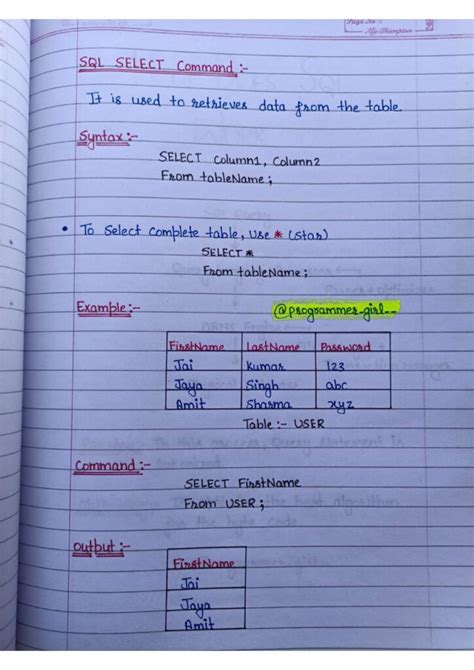 Page No.
My Champion
SQL SELECT Command :-
It is used to retrieves data from the table.
Syntax :-
SELECT Column1, Column2
From tableName;
• To Select Complete table, Use * (star)
SELECT *
From tableName;
Example :-
@programmer_girl__
FirstName LastName Password
Jai Kumar 123
Jaya Singh abc
Amit Sharma xyz
Table :- USER
Command :-
SELECT FirstName
From USER;
Output :-
FirstName
Jai
Jaya
Amit